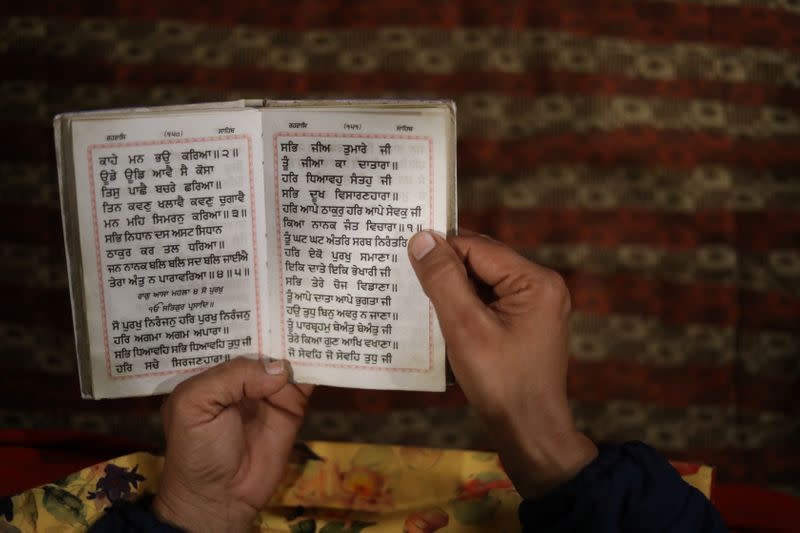 ਰਹਰਾਸਿ (੧੫੦) ਸਾਹਿਬ
ਕਾਹੇ ਮਨ ਭਉ ਕਰਿਆ॥੨॥
ਊਡੇ ਊਡਿ ਆਵੈ ਸੈ ਕੋਸਾ
ਤਿਸੁ ਪਾਛੈ ਬਚਰੇ ਛਰਿਆ॥
ਤਿਨ ਕਵਣੁ ਖਲਾਵੈ ਕਵਣੁ ਚੁਗਾਵੈ
ਮਨ ਮਹਿ ਸਿਮਰਨੁ ਕਰਿਆ॥੩॥
ਸਭਿ ਨਿਧਾਨ ਦਸ ਅਸਟ ਸਿਧਾਨ
ਠਾਕੁਰ ਕਰ ਤਲ ਧਰਿਆ॥
ਜਨ ਨਾਨਕ ਬਲਿ ਬਲਿ ਸਦ ਬਲਿ ਜਾਈਐ
ਤੇਰਾ ਅੰਤੁ ਨ ਪਾਰਾਵਰਿਆ॥੪॥੫॥
ਰਾਗੁ ਆਸਾ ਮਹਲਾ ੪ ਸੋ ਪੁਰਖੁ
ੴ ਸਤਿਗੁਰ ਪ੍ਰਸਾਦਿ॥
ਸੋ ਪੁਰਖੁ ਨਿਰੰਜਨੁ ਹਰਿ ਪੁਰਖੁ ਨਿਰੰਜਨੁ
ਹਰਿ ਅਗਮਾ ਅਗਮ ਅਪਾਰਾ॥
ਸਭਿ ਧਿਆਵਹਿ ਸਭਿ ਧਿਆਵਹਿ ਤੁਧੁ ਜੀ
ਹਰਿ ਸਚੇ ਸਿਰਜਣਹਾਰਾ॥
ਰਹਰਾਸਿ (੧੫੧) ਸਾਹਿਬ
ਸਭਿ ਜੀਅ ਤੁਮਾਰੇ ਜੀ
ਤੂੰ ਜੀਆ ਕਾ ਦਾਤਾਰਾ॥
ਹਰਿ ਧਿਆਵਹੁ ਸੰਤਹੁ ਜੀ
ਸਭਿ ਦੂਖ ਵਿਸਾਰਣਹਾਰਾ॥
ਹਰਿ ਆਪੇ ਠਾਕੁਰੁ ਹਰਿ ਆਪੇ ਸੇਵਕੁ ਜੀ
ਕਿਆ ਨਾਨਕ ਜੰਤ ਵਿਚਾਰਾ॥੧॥
ਤੂੰ ਘਟ ਘਟ ਅੰਤਰਿ ਸਰਬ ਨਿਰੰਤਰਿ
ਹਰਿ ਏਕੋ ਪੁਰਖੁ ਸਮਾਣਾ॥
ਇਕਿ ਦਾਤੇ ਇਕਿ ਭੇਖਾਰੀ ਜੀ
ਸਭਿ ਤੇਰੇ ਚੋਜ ਵਿਡਾਣਾ॥
ਤੂੰ ਆਪੇ ਦਾਤਾ ਆਪੇ ਭੁਗਤਾ ਜੀ
ਹਉ ਤੁਧੁ ਬਿਨੁ ਅਵਰੁ ਨ ਜਾਣਾ॥
ਤੂੰ ਪਾਰਬ੍ਰਹਮੁ ਬੇਅੰਤੁ ਬੇਅੰਤੁ ਜੀ
ਤੇਰੇ ਕਿਆ ਗੁਣ ਆਖਿ ਵਖਾਣਾ॥
ਜੋ ਸੇਵਹਿ ਜੋ ਸੇਵਹਿ ਤੁਧੁ ਜੀ